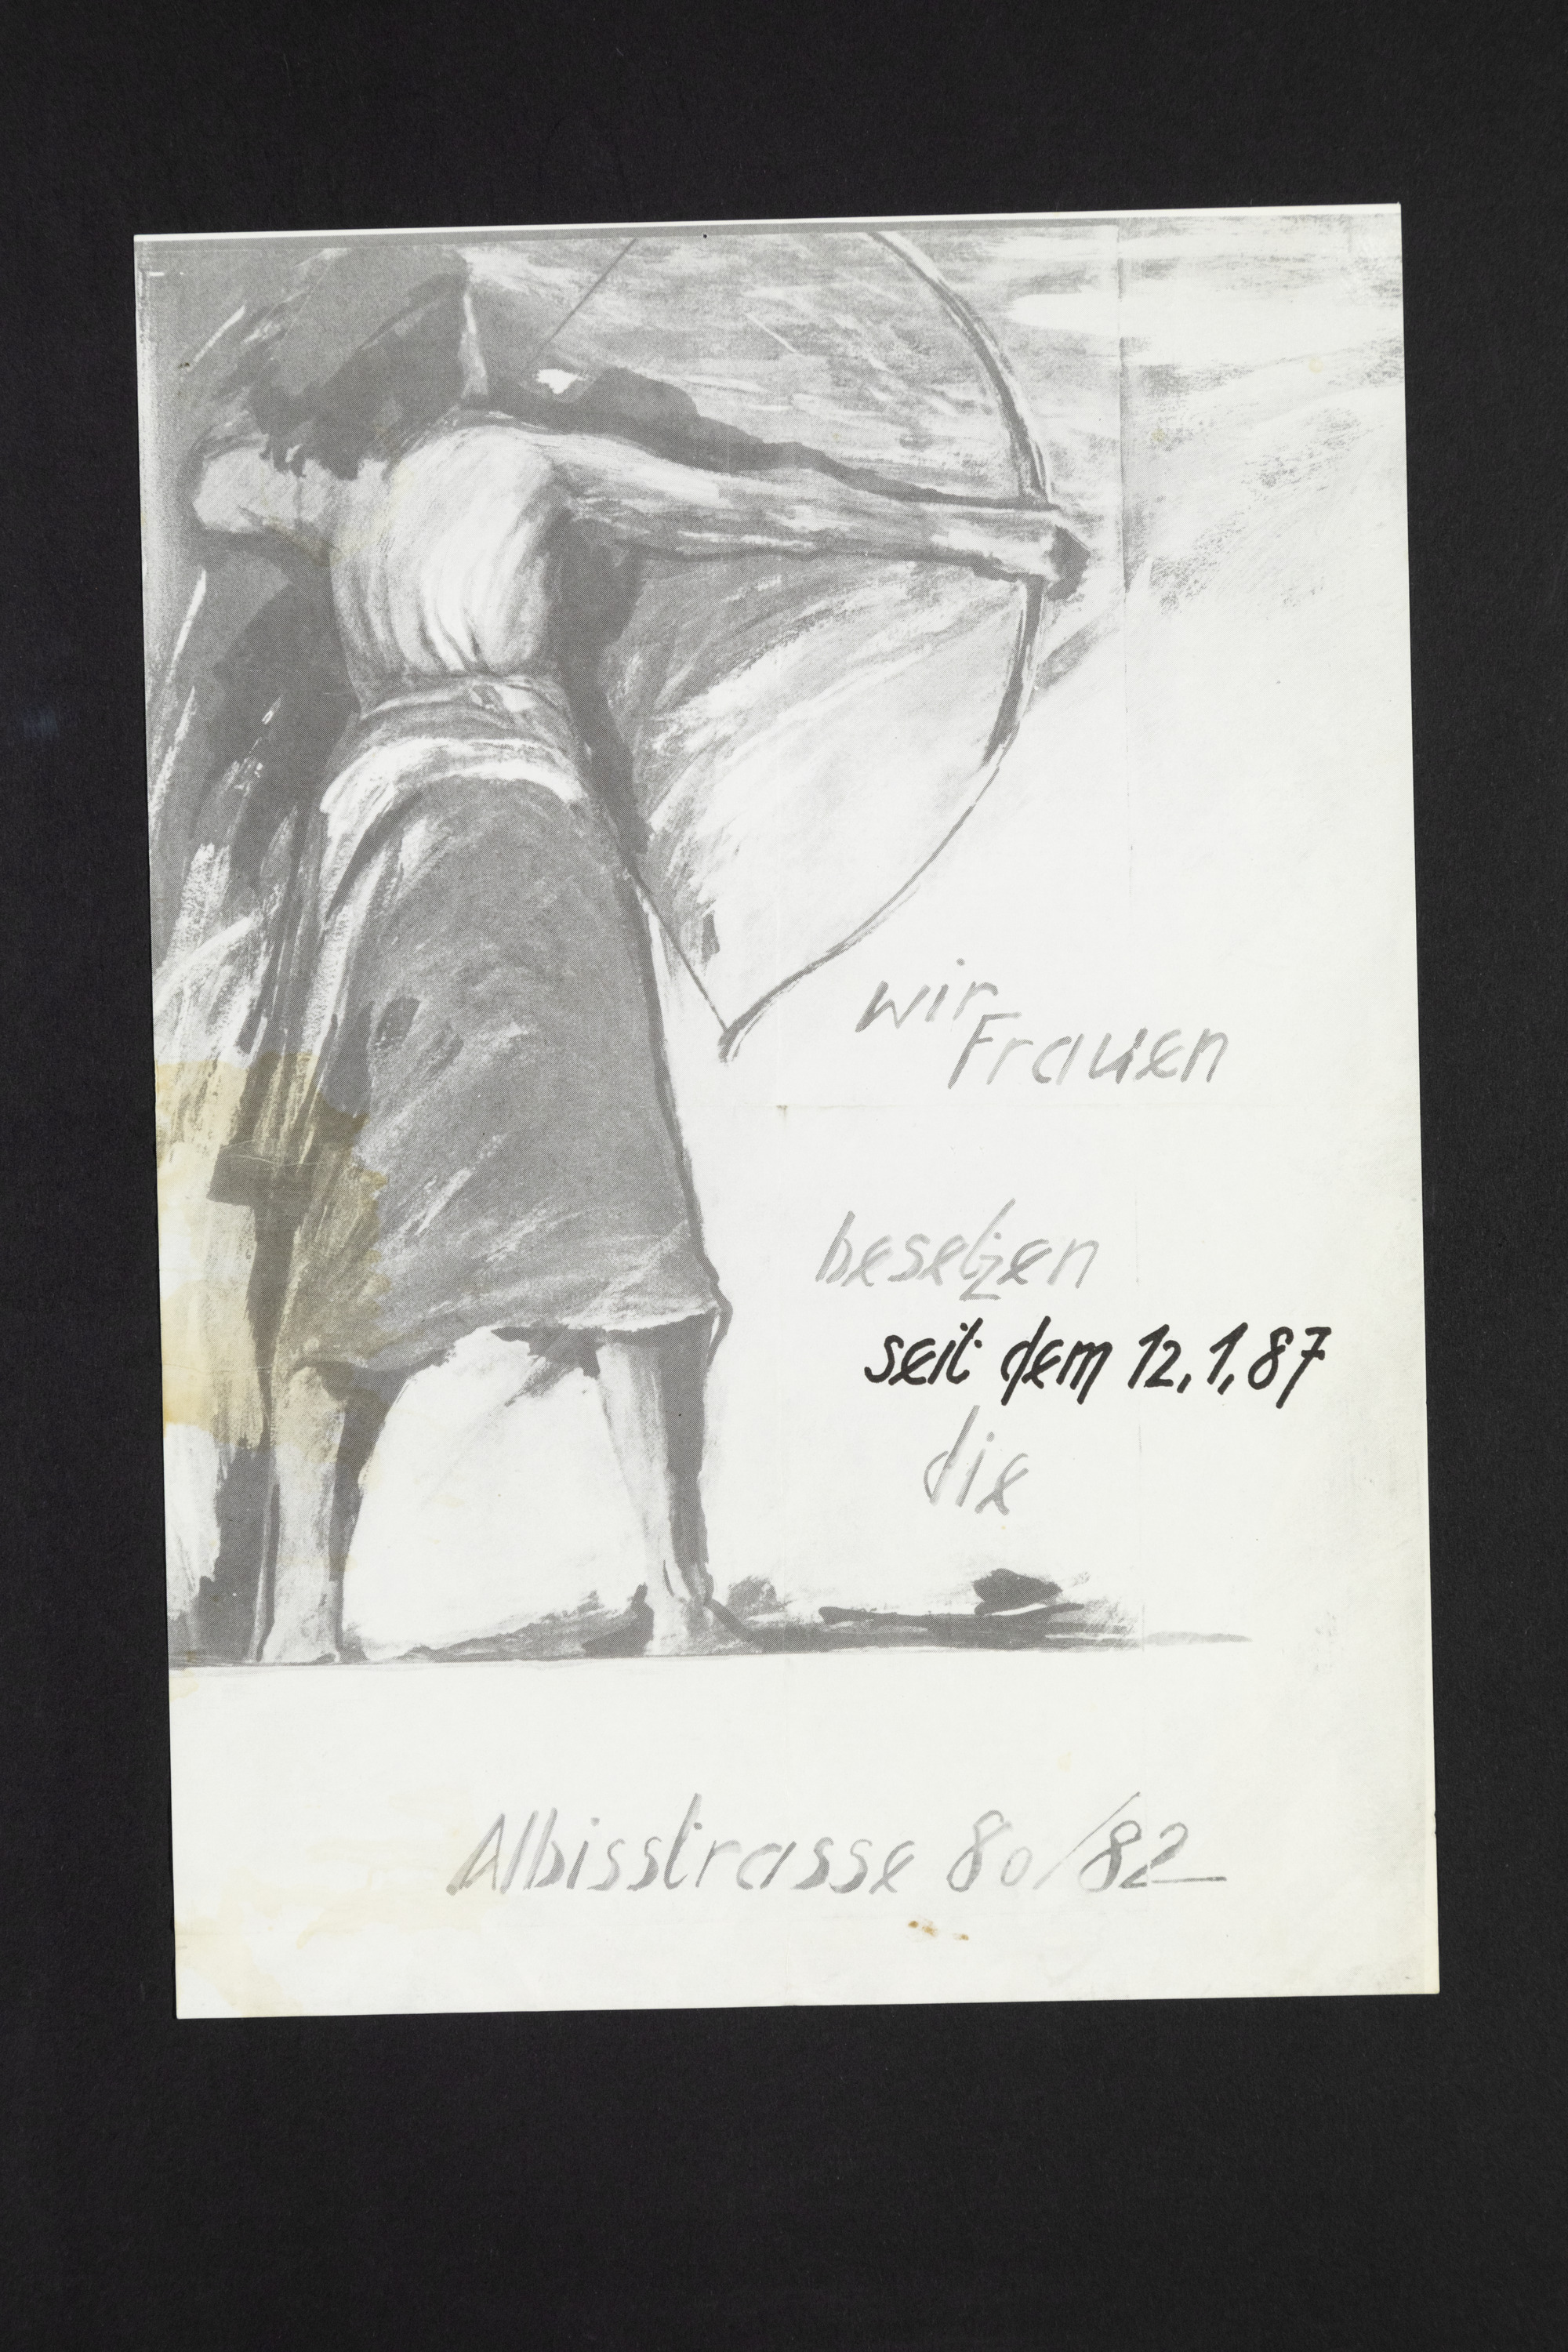 wir
Frauen
besetzen
seit dem 12,1,87
die
Albisstrasse 80/82